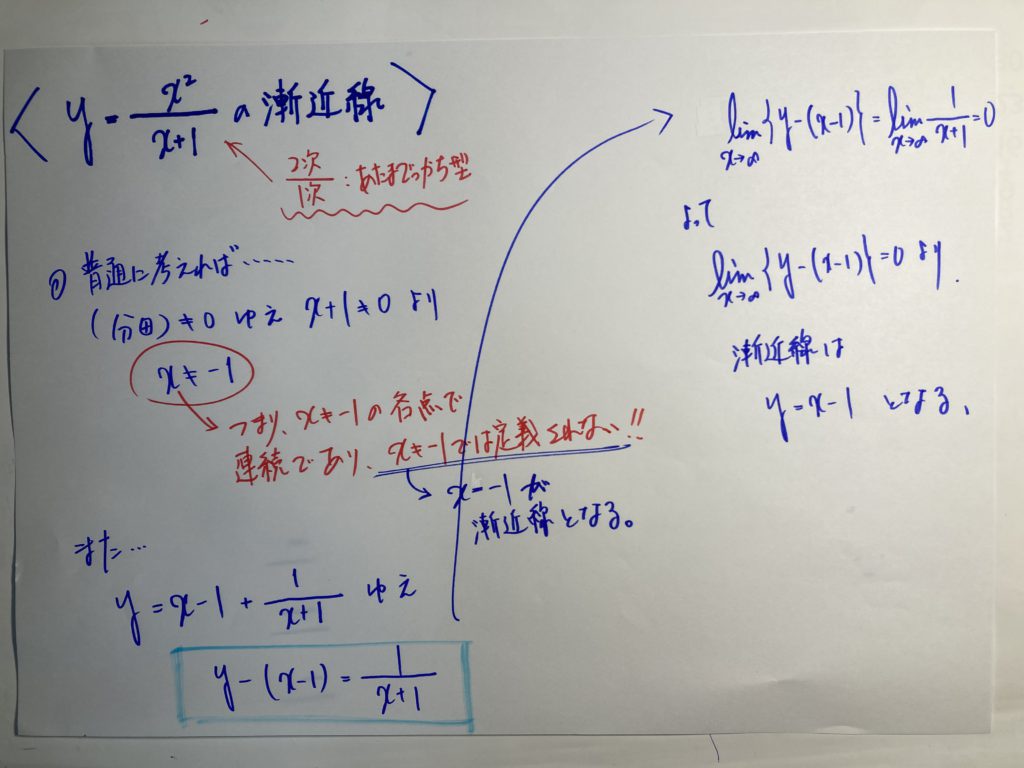 〈 y = x²/(x+1) の漸近線 〉
2次/1次 : あたまでっかち型
① 普通に考えれば……
(分母) ≠ 0 ゆえ x+1 ≠ 0 より
x ≠ -1
つまり、x ≠ -1 の各点で
連続であり、x ≠ -1では定義されない!!
x = -1 が
漸近線となる。
また…
y = x-1 + 1/(x+1) ゆえ
y - (x-1) = 1/(x+1)
lim x→∞ {y-(x-1)} = lim x→∞ 1/(x+1) = 0
よって
lim x→∞ {y-(x-1)} = 0 より.
漸近線は
y = x-1 となる、